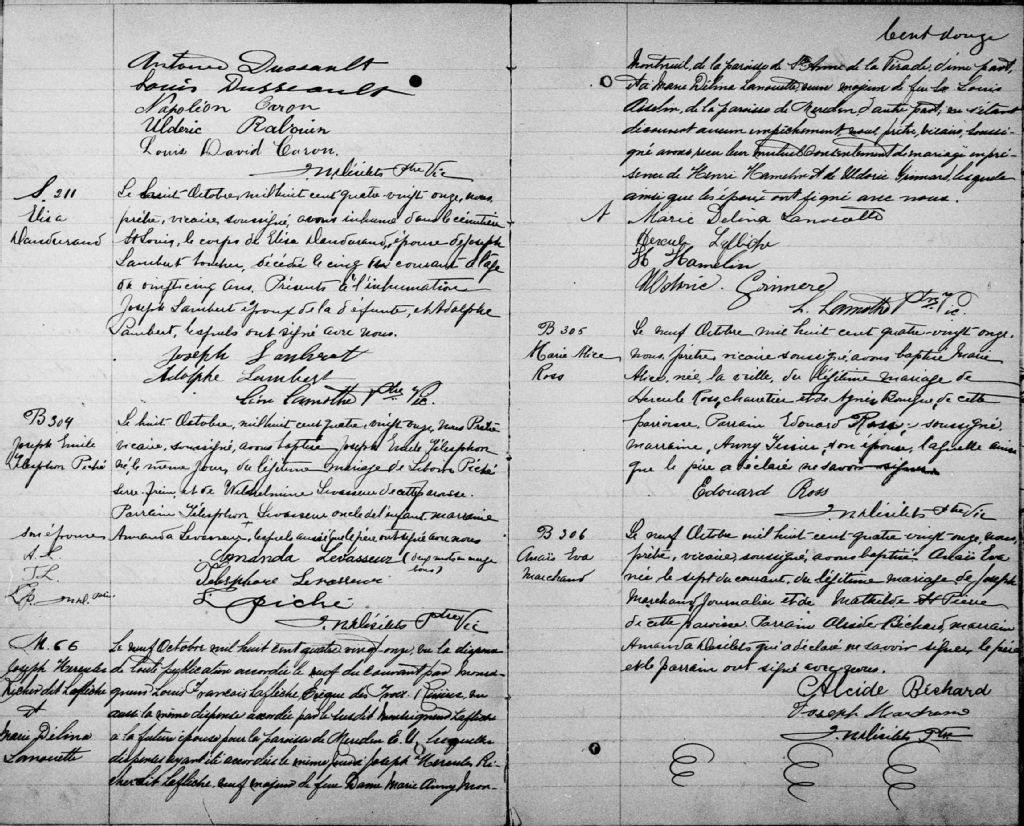 Antoine Dussault
Louis Dusseault
Napoléon Caron
Ulderic
Louis David Caron.
Ptre Vic
S. 211
Elisa
Dandurand
Le huit Octobre, mil huit cent quatre vingt onze, nous,
prêtre, vicaire, soussigné, avons inhumé dans le cimetière
St Louis, le corps de Elisa Dandurand, épouse de Joseph
Lambert décédée le cinq du courant à l'âge
de vingt cinq ans. Présents à l'inhumation
Joseph Lambert époux de la défunte, et Adolphe
Lambert, lesquels ont signé avec nous.
Joseph Lambert
Adolphe Lambert
Léon Lamothe Ptre Vic.
B 304
Joseph Emile
Télesphon Piché
Le huit Octobre, mil huit cent quatre vingt onze, nous Prêtre
vicaire, soussigné, avons baptisé Joseph Emile Télesphon
né, le même jour, du légitime mariage de Piché
serre-frein, et de Wilhelmine Levasseur de cette paroisse.
Parrain Télesphon Levasseur oncle de l'enfant, marraine
Amanda Levasseur, lesquels ainsi que le père ont signé avec nous
son épouse
A. L.
T. L.
L. P.
Amanda Levasseur (deux mots en marge
bons)
Télesphore Levasseur
L Piché
Ptre Vic
M. 66
Joseph Hercule
Richer dit Laflèche
et
Marie Délima
Lanouette
Le neuf Octobre mil huit cent quatre vingt onze, vu la dispense
de toute publication accordée le neuf du courant par Monsei-
gneur Louis François Laflèche, Evêque des Trois Rivières, vu
aussi la même dispense accordée par le susdit Monseigneur Laflèche
à la future épouse pour la paroisse de Meriden E. U., lesquelles
dispenses ayant été accordées le même jour à Joseph Hercule Ri-
cher dit Laflèche, veuf majeur de feue Dame Marie Anny Mon-
Cent douze
Montreuil, de la paroisse de Ste Anne de la Pérade, d'une part,
et à Marie Délima Lanouette, veuve majeure de feu Louis
Asselin, de la paroisse de Meriden, d'autre part, ne s'étant
découvert aucun empêchement, nous prêtre, vicaire, soussi-
gné avons reçu leur mutuel consentement de mariage en pré-
sence de Henri Hamelin et de Ulderic lesquels
ainsi que les époux ont signé avec nous.
A Marie Delina Lanouette
Hercule Lafleche
H Hamelin
Ulderic
L. Lamothe Ptre Vic.
B 305
Marie Alice
Ross
Le neuf Octobre mil huit cent quatre-vingt onze,
nous, prêtre, vicaire soussigné avons baptisé Marie
Alice, née, la veille, du légitime mariage de
Hercule Ross, charretier et de Agnès de cette
paroisse. Parrain Edouard Ross, soussigné,
marraine, Anny Tessier, son épouse, laquelle ainsi
que le père a déclaré ne savoir signer.
Edouard Ross
Ptre Vic
B 306
Anaïs Eva
Marchand
Le neuf Octobre mil huit cent quatre vingt onze, nous,
prêtre, vicaire, soussigné, avons baptisé Anaïs Eva
née le sept du courant, du légitime mariage de Joseph
Marchand, Journalier et de Mathilde St Pierre
de cette paroisse. Parrain Alcide Béchard, marraine
Amanda Desilets qui a déclaré ne savoir signer, le père
et le parrain ont signé avec nous.
Alcide Bechard
Joseph Marchand
Ptre